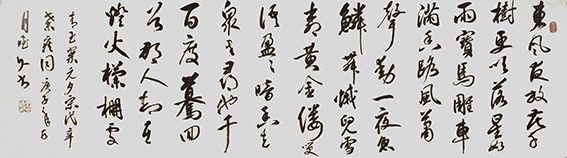 東風夜放花千
樹更吹落星如
雨寶馬雕車
滿香路風簫
聲動一夜魚
舞蛾兒雪
黃金縷笑
語盈盈暗香去
尋他千
百度驀回
首那人却在
燈火欄柵處
青玉案元夕宋代辛
棄疾詞庚子年
月